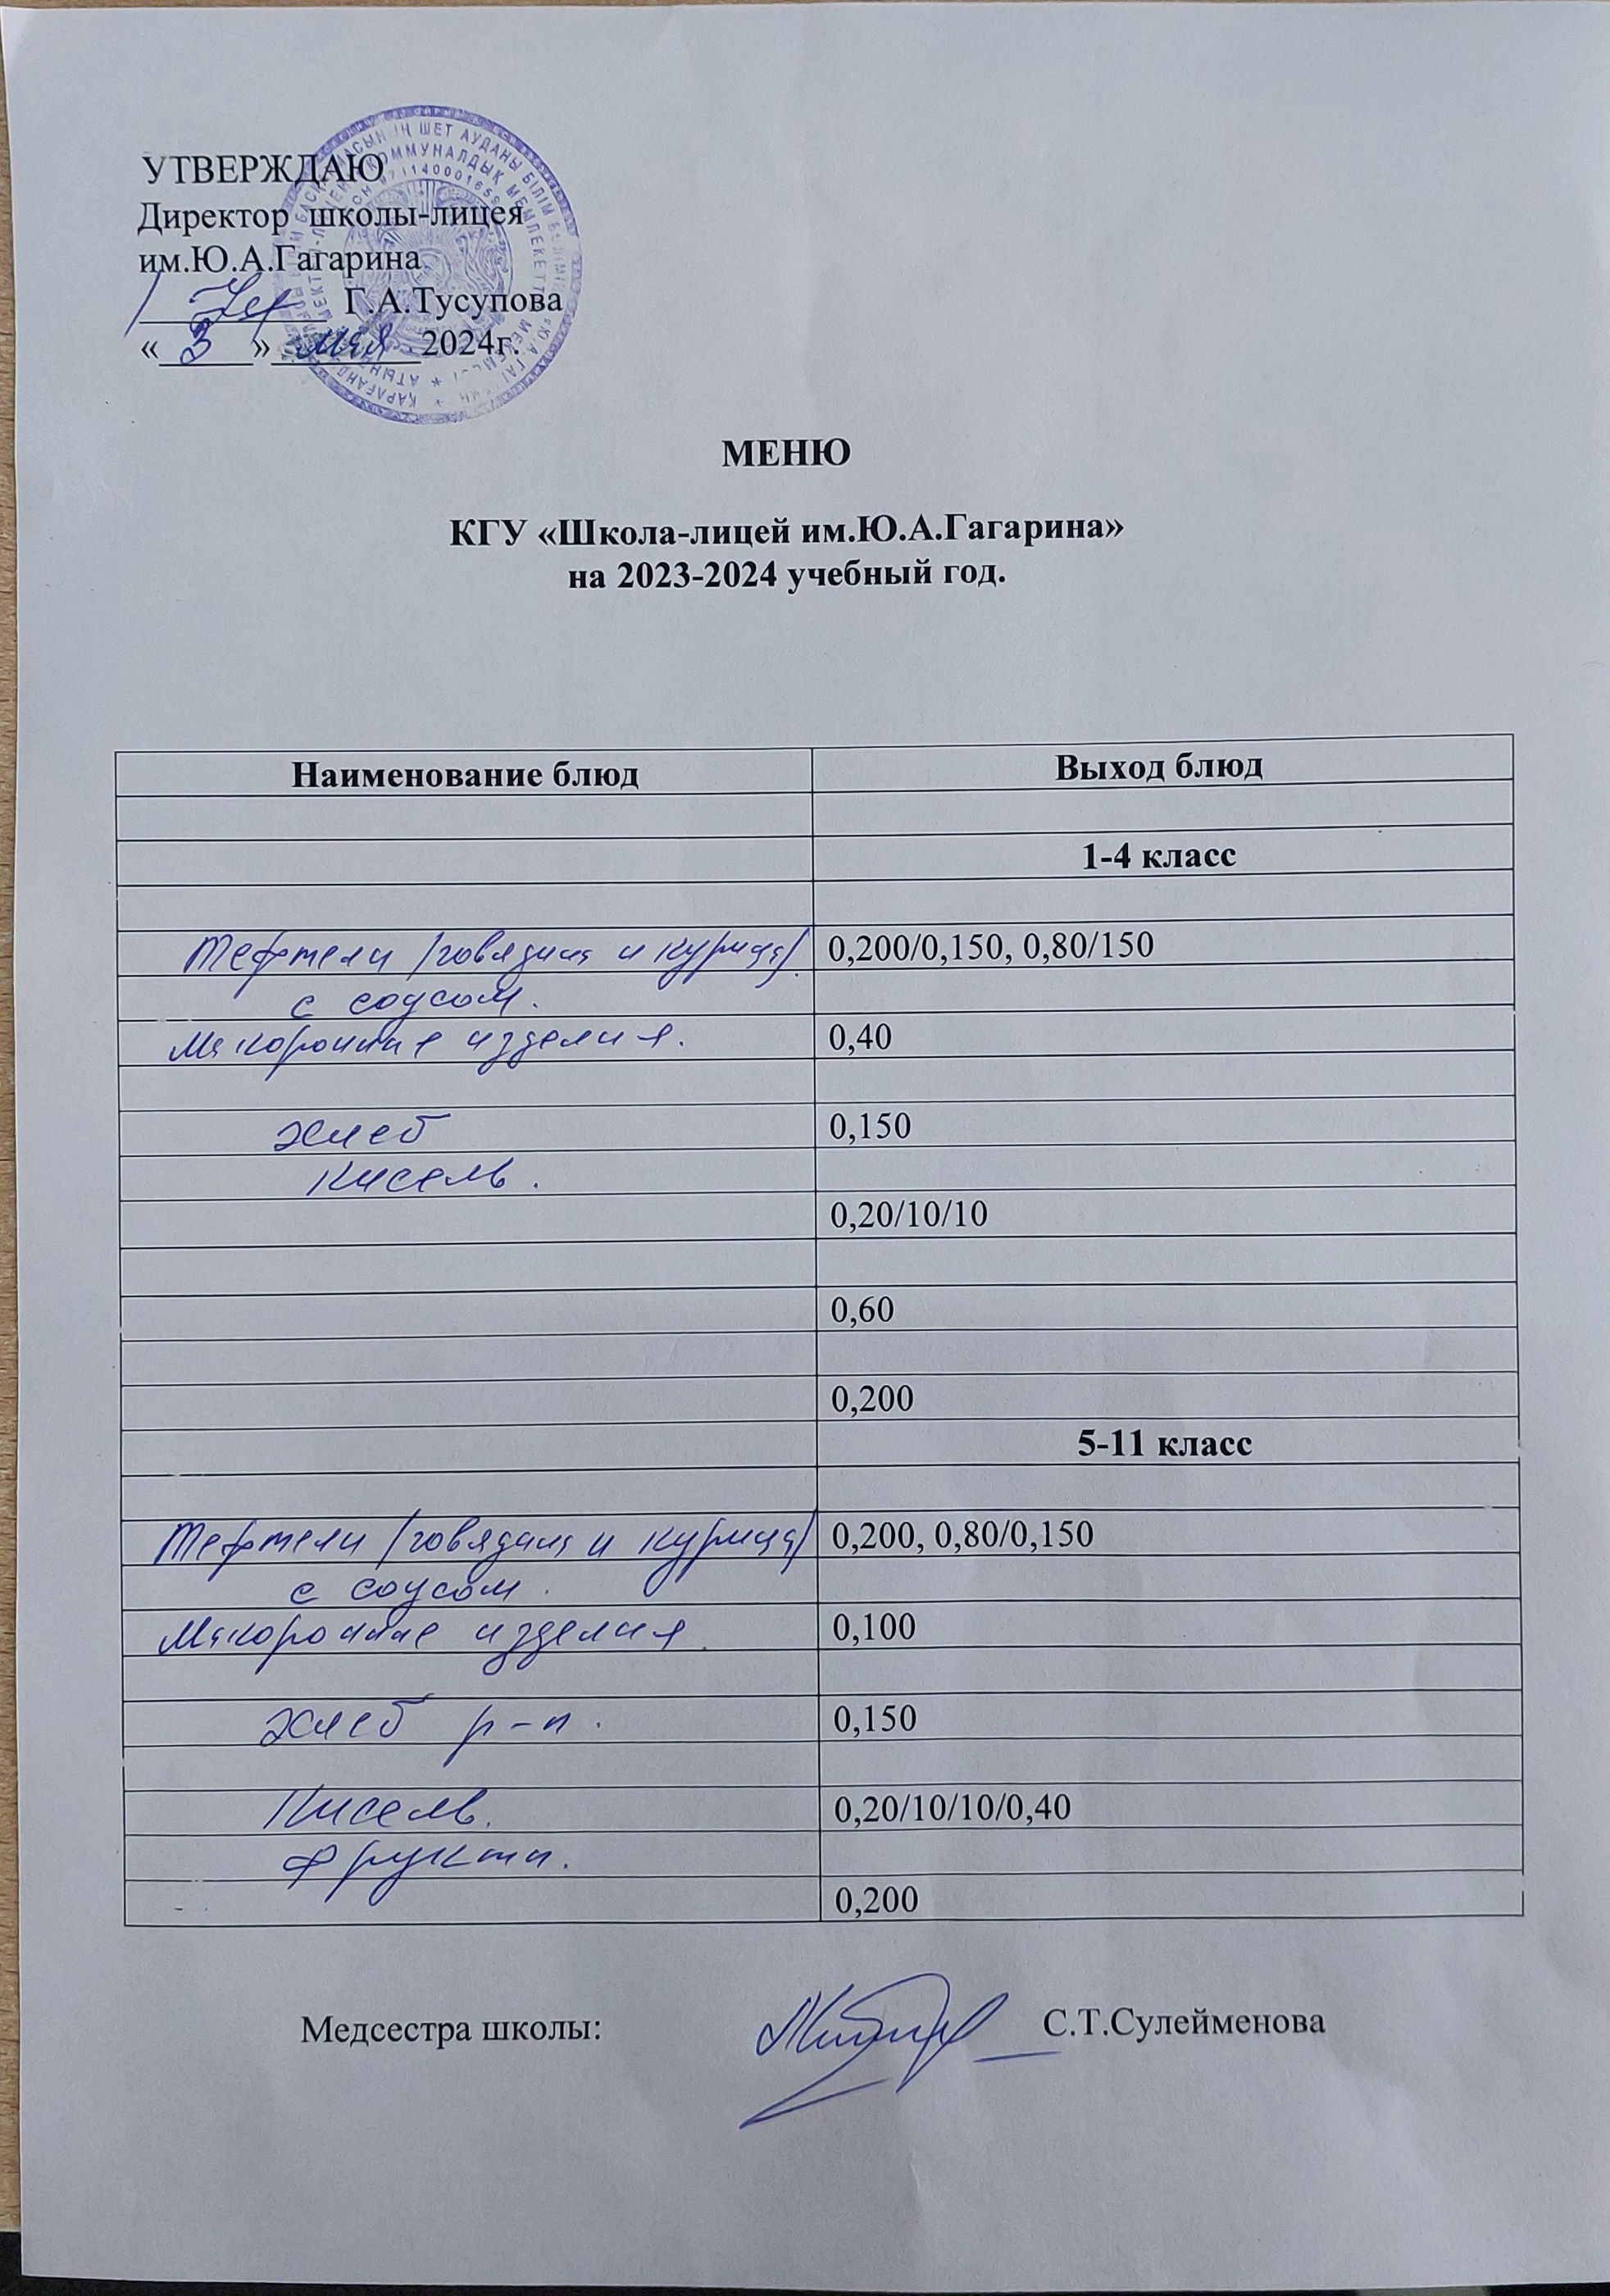 УТВЕРЖДАЮ
Директор школы-лицея
им.Ю.А.Гагарина
Г.А.Тусупова
« 3 » мая 2024г.
МЕНЮ
КГУ «Школа-лицей им.Ю.А.Гагарина»
на 2023-2024 учебный год.
Наименование блюд Выход блюд
1-4 класс
Тефтели /говядина и курица/ 0,200/0,150, 0,80/150
с соусом.
Макоронные изделия. 0,40
хлеб 0,150
Кисель.
0,20/10/10
0,60
0,200
5-11 класс
Тефтели /говядина и курица/ 0,200, 0,80/0,150
с соусом.
Макоронные изделия. 0,100
хлеб р-п. 0,150
Кисель. 0,20/10/10/0,40
Фрукты.
0,200
Медсестра школы: С.Т.Сулейменова